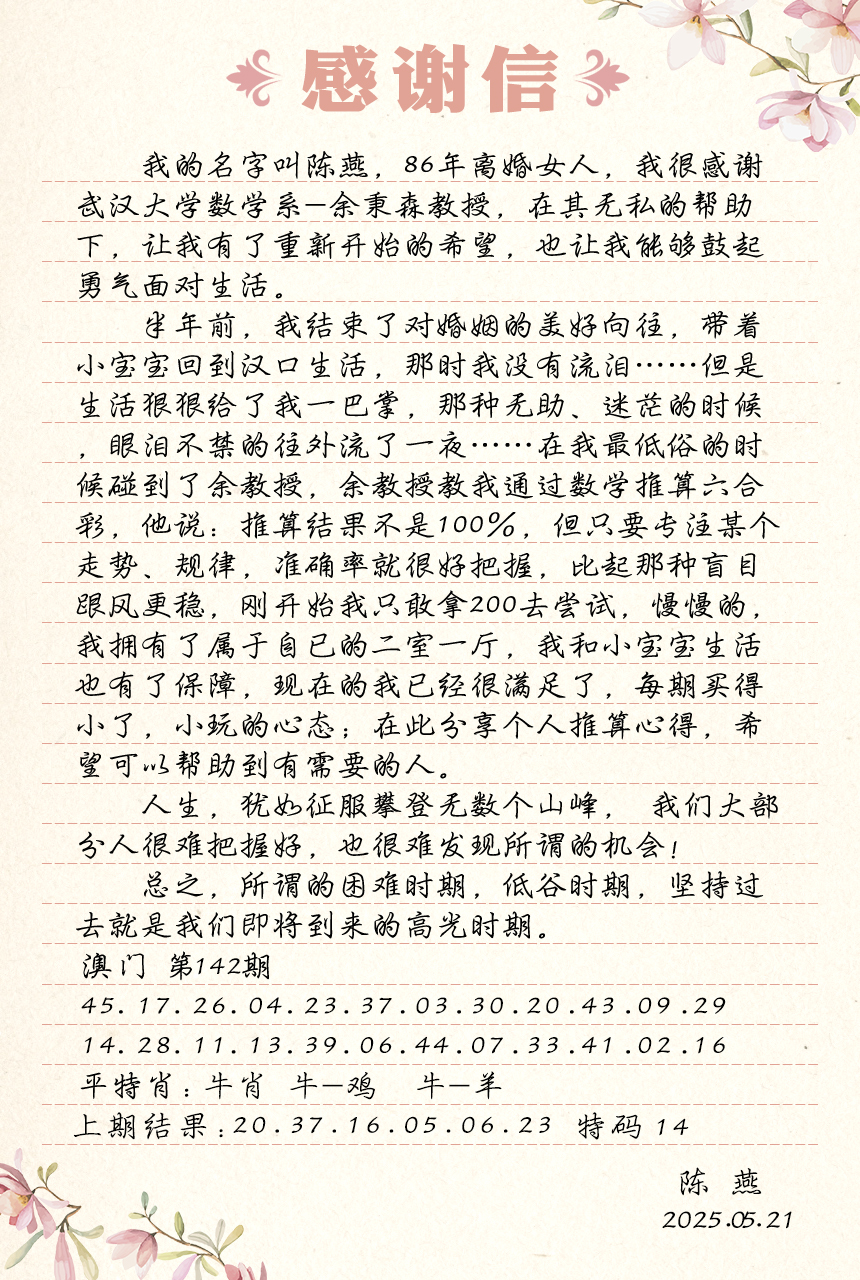 感谢信
我的名字叫陈燕，86年离婚女人，我很感谢
武汉大学数学系—余秉森教授，在其无私的帮助
下，让我有了重新开始的希望，也让我能够鼓起
勇气面对生活。
半年前，我结束了对婚姻的美好向往，带着
小宝宝回到汉口生活，那时我没有流泪……但是
生活狠狠给了我一巴掌，那种无助、迷茫的时候
，眼泪不禁的往外流了一夜……在我最低俗的时
候碰到了余教授，余教授教我通过数学推算六合
彩，他说：推算结果不是100%，但只要专注某个
走势、规律，准确率就很好把握，比起那种盲目
跟风更稳，刚开始我只敢拿200去尝试，慢慢的，
我拥有了属于自已的二室一厅，我和小宝宝生活
也有了保障，现在的我已经很满足了，每期买得
小了，小玩的心态；在此分享个人推算心得，希
望可以帮助到有需要的人。
人生，犹如征服攀登无数个山峰， 我们大部
分人很难把握好，也很难发现所谓的机会！
总之，所谓的困难时期，低谷时期，坚持过
去就是我们即将到来的高光时期。
澳门 第142期
45.17.26.04.23.37.03.30.20.43.09.29
14.28.11.13.39.06.44.07.33.41.02.16
平特肖：牛肖 牛—鸡 牛—羊
上期结果：20.37.16.05.06.23 特码 14
陈 燕
2025.05.21